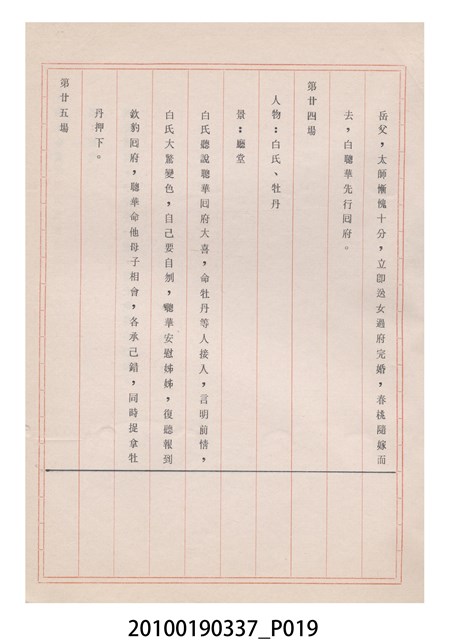 岳父，太師慚愧十分，立即送女過府完婚，春桃隨嫁而
去，白聰華先行囘府。
第廿四場
人物：白氏、牡丹
景：廳堂
白氏聽說聰華囘府大喜，命牡丹等人接人，言明前情，
白氏大驚變色，自己要自刎，聰華安慰姊姊，復聽報到
敘豹囘府，聰華命他母子相會，各承己錯，同時捉拿牡
丹押下。
第廿五場
20100190337_P019